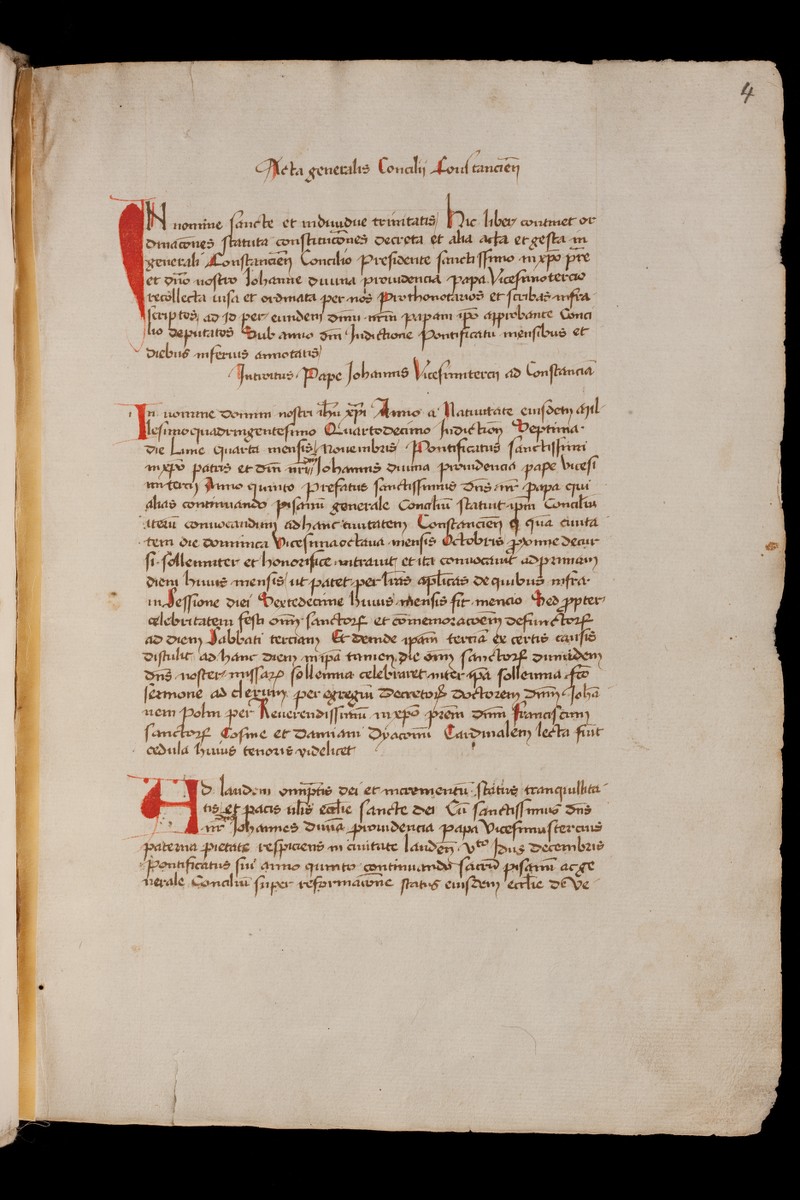 4
Acta generalis Concilij Constancien̄
IN nomine sancte et individue trinitatis Hic liber continet or
dinac̄ones statuta constituc̄ones decreta et alia acta et gesta in
generali Constancien̄ Concilio Presidente sanctissimo in xp̄o pr̄e
et dn̄o nostro Iohanne divina providencia papa Vicesimotercio
recollecta visa et ordinata per nos Prothonotarios et scribas infra
scriptos ad id per eundem dn̄m nr̄m papam ip̄o approbante Conci
lio deputatos Sub anno dn̄i Indictione Pontificatu mensibus et
diebus inferius annotatis
Introitus Pape Iohannis Vicesimitercij ad Constanciā
In nomine domini nostri ih̄u xp̄i Anno a Nativitate eiusdem Mil
lesimoquadringentesimo Quartodecimo Indiction̄ Septima
die Lune quarta mensis Novembris Pontificatus sanctissimi
in xp̄o patris et dn̄i nr̄i Iohannis divina providencia pape vicesi
mitercij Anno quinto Prefatus sanctissimus dn̄s nr̄ papa qui
alias continuando pisanū generale Conciliū statuit ip̄m Conciliū
iterū convocandum ad hanc civitatem Constancien̄ quā civita
tem die dominica Vicesimaoctava mensis Octobris proxime decur
si sollenniter et honorifice intravit et ita convocavit ad primam
diem huius mensis ut patet per lr̄as apl̄icas de quibus infra
in Sessione diei Sextedecime huius mensis fit mencio Sed propter
celebritatem festi om̄i sanctorꝝ et com̄emoracōem defunctorꝝ
ad diem Sabbati terciam Et deinde ip̄am terciā ex certis causis
distulit ad hanc diem in ip̄a tamen die om̄i sanctorꝝ dum idem
dn̄s noster missarꝝ sollennia celebraret inter ip̄a sollennia fc̄o
sermone ad clerum per egregiū decretorꝝ doctorem dn̄m Iohā
nem Polin per Reverendissimū in xp̄o pr̄em dn̄m Franciscum
sanctorꝝ Cosme et Damiani Dyaconū Cardinalem lecta fuit
cedula huius tenoris videlicet
Ad laudem omp̄tis dei et incrementū status tranquillita
tis et pacis ul̄is eccl̄ie sancte dei Cū sanctissimus dn̄s
nr̄ Iohannes divina providencia papa Vicesimustercius
paterna pietate respiciens in civitate lauden̄ vto Idus decembris
Pontificatus sui anno quinto continuando sacrū pisanū ac ge
nerale Conciliū super reformac̄one status eiusdem eccl̄ie de Ve